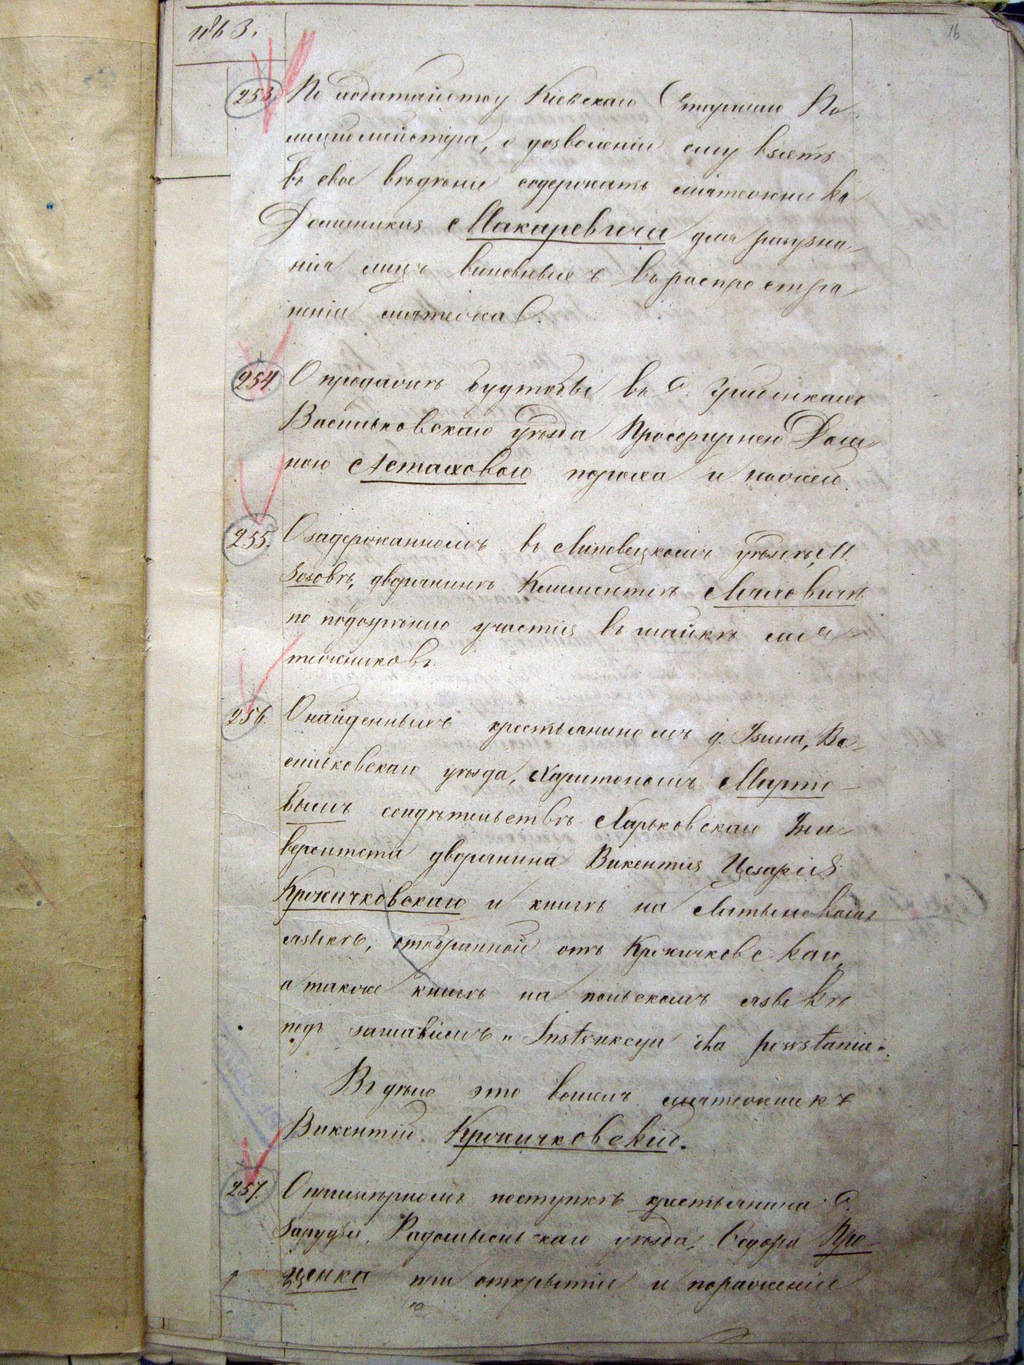 1863.
16
253. По ходатайству Кіевскаго Старшаго По-
лиціймейстера, о дозволеніи ему взять
въ свое вѣдѣніе содержать мятежника
Доминика Макаревича для розузна-
нія лицъ виновныхъ въ распростра-
неніи мятежа
254. О продажѣ будтобы въ с.
Васильковскаго уѣзда Просфирнею Дом-
ною Астаховою пороха и ножей.
255. О задержанномъ въ Липовецкомъ уѣздѣ, М.
Зозовѣ, дворянинѣ Климентіѣ
по подозрѣнію участія въ шайкѣ мя-
тежниковъ.
256. О найденныхъ крестьяниномъ д. Ва-
сильковскаго уѣзда, Харитономъ Марто-
вымъ свидѣтельствѣ Харьковскаго Уни-
верситета дворянина Викентія
Кржичковскаго и книгѣ на Латынскомъ
языкѣ, отобранной отъ Кржичковскаго,
а также книгѣ на польскомъ языкѣ
подъ заглавіемъ „Instrukcya dla powstania".
Въ дѣло это вошелъ мятежникъ
Викентій Кржичковскій.
257. О примѣрномъ поступкѣ крестьянина с.
Зарудья, Радомысльскаго уѣзда, Ѳедора Про-
ценка при открытіи и пораженіи